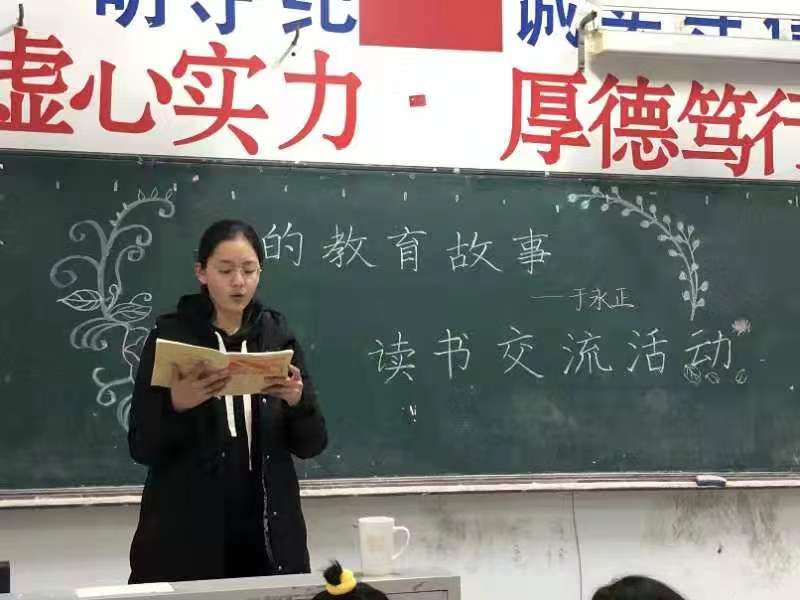 明守纪 诚实守信
虚心实力·厚德笃行
的教育故事
——于永正
读书交流活动